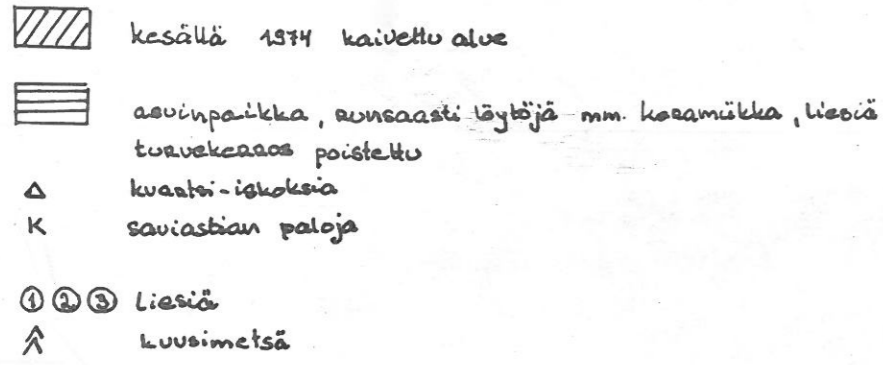 kesällä 1974 kaivettu alue
asuinpaikka, runsaasti löytöjä mm. keramiikka, liesiä
turvekerros poistettu
kvartsi-iskoksia
K saviastian paloja
① ② ③ liesiä
kuusimetsä